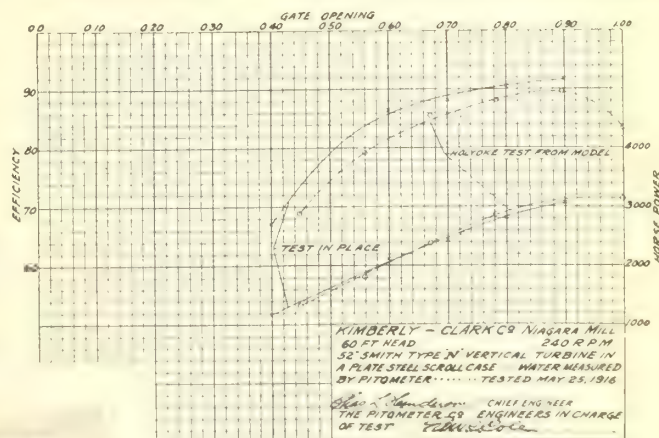 GATE OPENING
0.0 0.10 0.20 0.30 0.40 0.50 0.60 0.70 0.80 0.90 1.00
EFFICIENCY
90
80
70
60
HORSE POWER
4000
3000
2000
1000
HOLYOKE TEST FROM MODEL
TEST IN PLACE
KIMBERLY - CLARK CO NIAGARA MILL
60 FT HEAD 240 R P M
52" SMITH TYPE "N" VERTICAL TURBINE IN
A PLATE STEEL SCROLL CASE WATER MEASURED
BY PITOMETER ....... TESTED MAY 25, 1916
CHIEF ENGINEER
THE PITOMETER CO ENGINEERS IN CHARGE
OF TEST